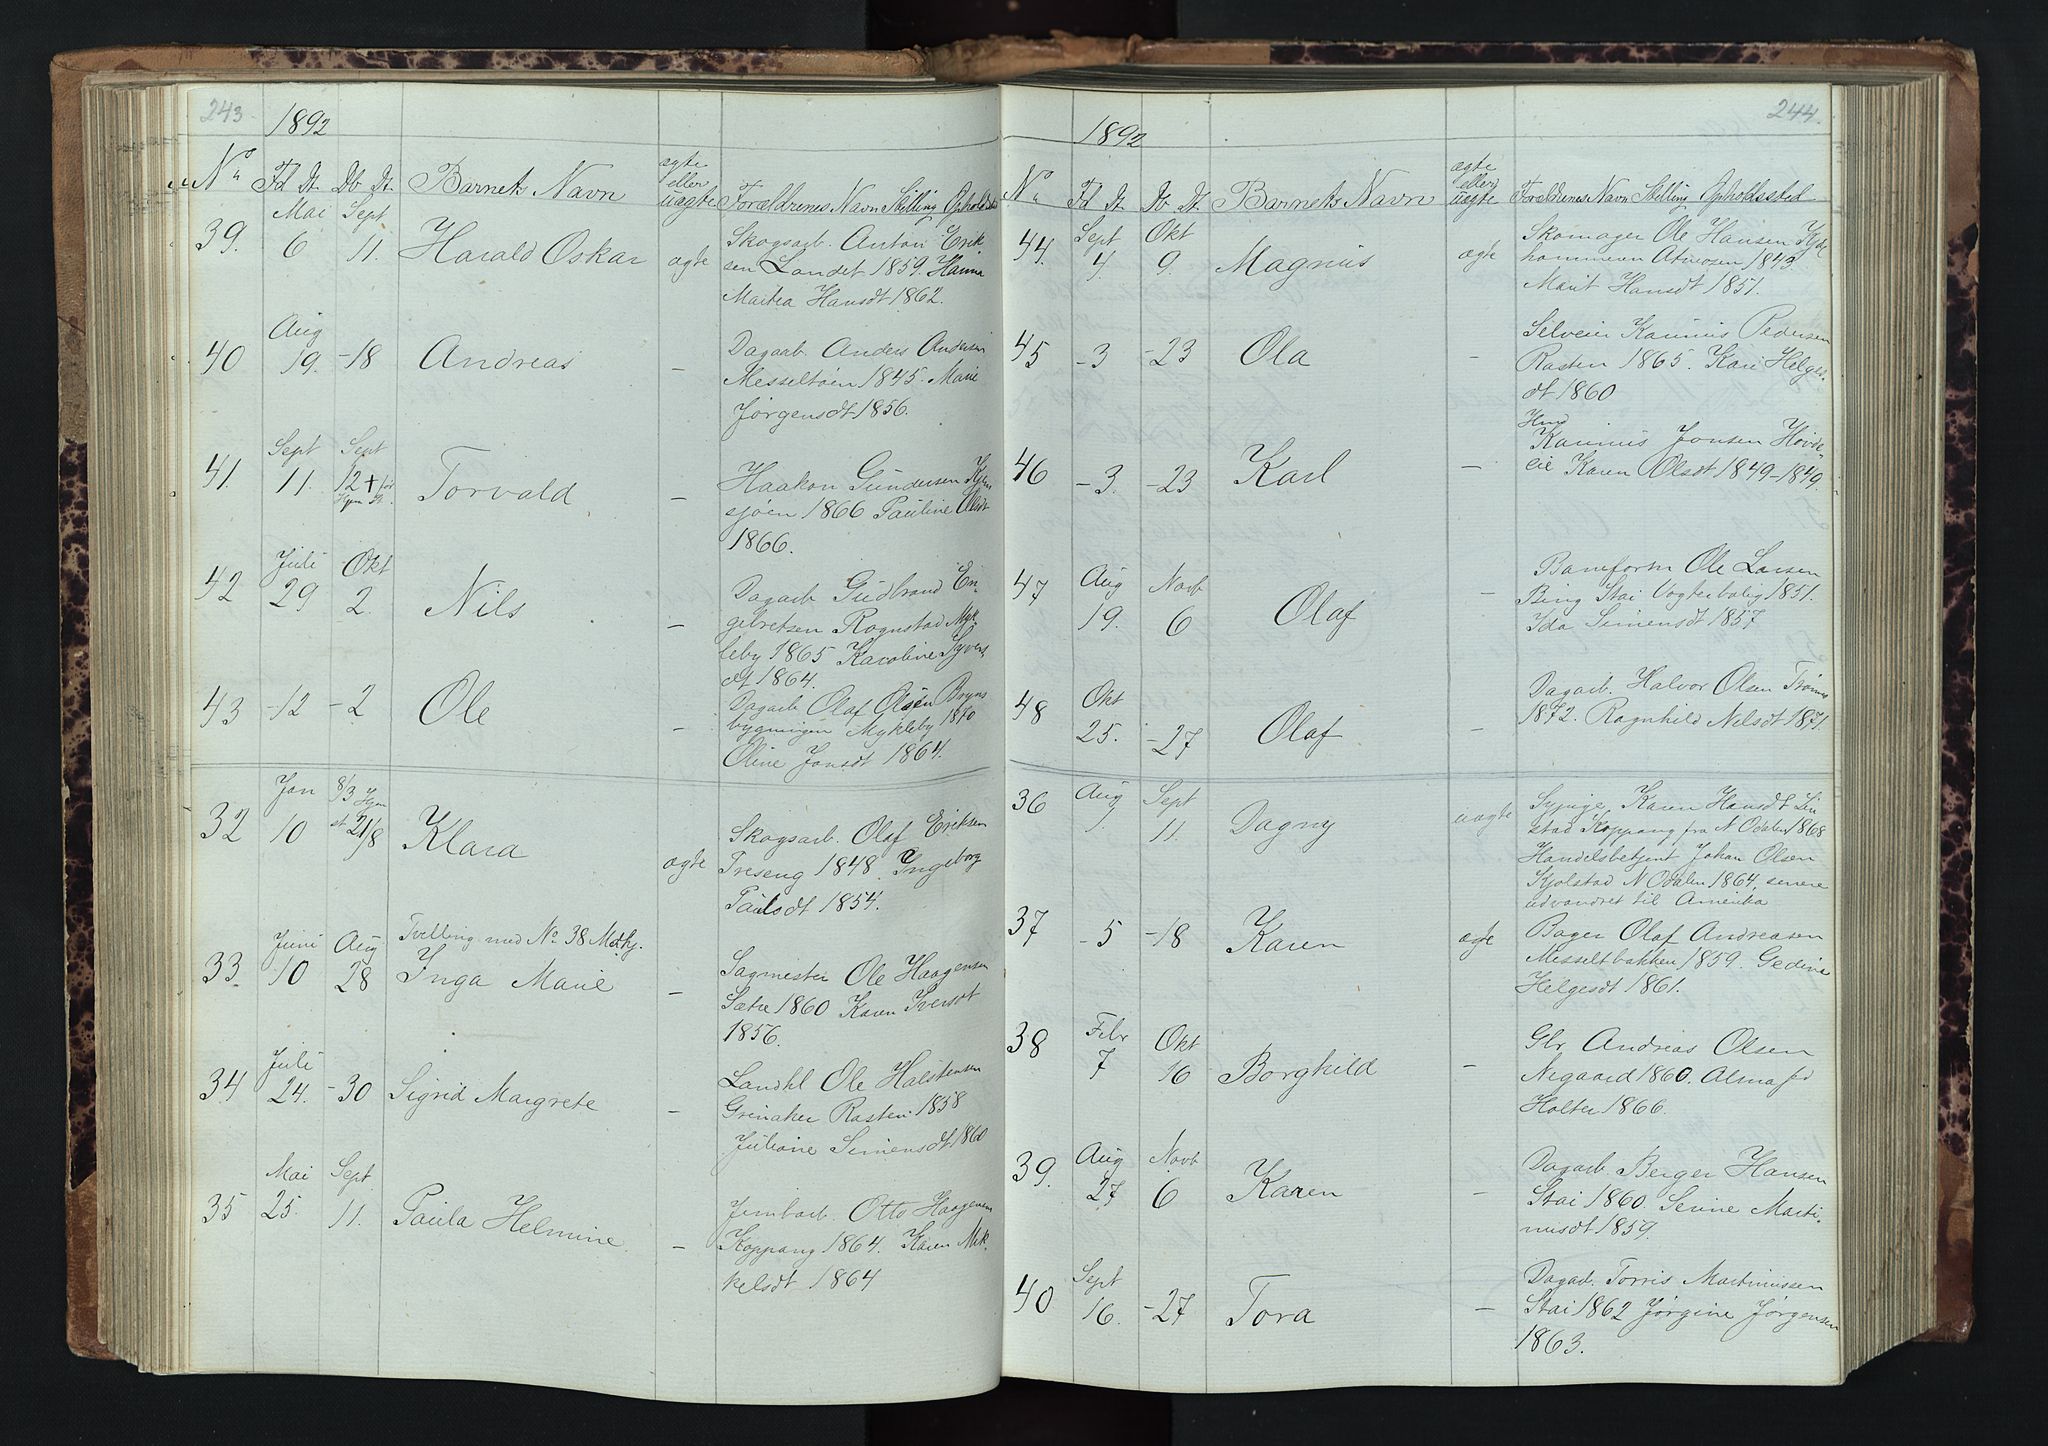 243.
1892
No Fd Dt. Db Dt. Barnets Navn ægte eller uægte Forældrenes Navn Stilling Opholdssted
39. Mai 6 Sept 11. Harald Oskar ægte Skogsarb. Anton Erik
sen Landet 1859. Hanna
Martea Hansdt 1862.
40 Aug 19. -18 Andreas - Dagarb. Anders Andersen
Messeltøen 1845. Marie
Jørgensdt 1856.
41. Sept 11. Sept 12 + før Hjm D. Torvald - Haakon Gundersen
sjøen 1866 Pauline Olsdt
1866.
42 Juli 29 Okt 2. Nils - Dagarb Gudbrand En-
gebretsen Rognstad Myk-
leby 1865 Karoline Syvers
dt 1864.
43 -12 -2 Ole - Dagarb Olaf Olsen Bryns
bygningen Mykleby 1870
Oline Jonsdt 1864.
32 Jan 10 8/3 Hjm et 21/8 Klara ægte Skogsarb. Olaf Eriksen
Treseng 1848 Ingeborg
Paulsdt 1854.
Tvilling med No 38 Mdkj.
33 Juni 10 Aug 28 Inga Marie - Sagmester Ole Haagensen
Sætre 1860 Karen Iversdt
1856.
34 Juli 24. -30 Sigrid Margrete - Landhl Ole Halstensen
Grinaker Rasten. 1858
Juliane Simensdt 1860
35 Mai 25. Sept. 11. Paula Helmine. - Jernbarb. Otto Haagensen
Koppang 1864. Karen Mik-
kelsdt 1864
244.
1892
No Fd Dt. Db Dt. Barnets Navn ægte eller uægte Forældrenes Navn Stilling Opholdssted
44. Sept 4. Okt 9. Magnus ægte Skomager Ole Hansen
Atneosen 1843.
Marit Hansdt 1851.
45 -3 -23 Ola - Selveier Kaunus Pedersen
Rasten 1865. Kari Helges-
dt 1860
46 -3. -23 Karl - Hmd
Kaunus Jonsen Hovde-
eie Karen Olsdt 1849-1849.
47 Aug 19. Novb 6 Olaf - Baneform Ole Larsen
Bing Stai Vogterbolig 1851.
Ida Simensdt 1857
48 Okt 25. -27 Olaf - Dagarb. Halvor Olsen Trønnes
1872. Ragnhild Nilsdt 1871.
36 Aug 7 Sept 11. Dagny uægte Sypige Karen Hansdt Lin
stad Koppang fra N Odalen 1868
Handelsbetjent Johan Olsen
Kjølstad N Odalen 1864, senere
udvandret til Amerika
37 -5 -18 Karen ægte Bager Olaf Andreasen
Messeltbakken 1859. Gedine
Helgesdt 1861.
38 Febr 7 Okt 16 Borghild - Gbr Andreas Olsen
Negaard 1860. Alma fd
Holter 1866.
39. Aug 27 Novb 6 Karen - Dagarb. Berger Hansen
Stai 1860. Serine Marti-
nusdt 1859.
40 Sept 16. -27 Tora - Dagarb. Torris Martinussen
Stai 1862 Jørgine Jørgensen
1863.